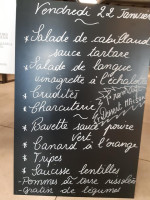 Vendredi 22 Janvier
* Salade de cabillaud
sauce tartare
* Salade de langue
vinaigrette à l'échalote
* Crudités
* Charcuterie
* Bavette sauce poivre
Vert
* Canard à l'orange
* Tripes
* Saucisse lentilles
- Pommes de terre rissolées
- gratin de légumes